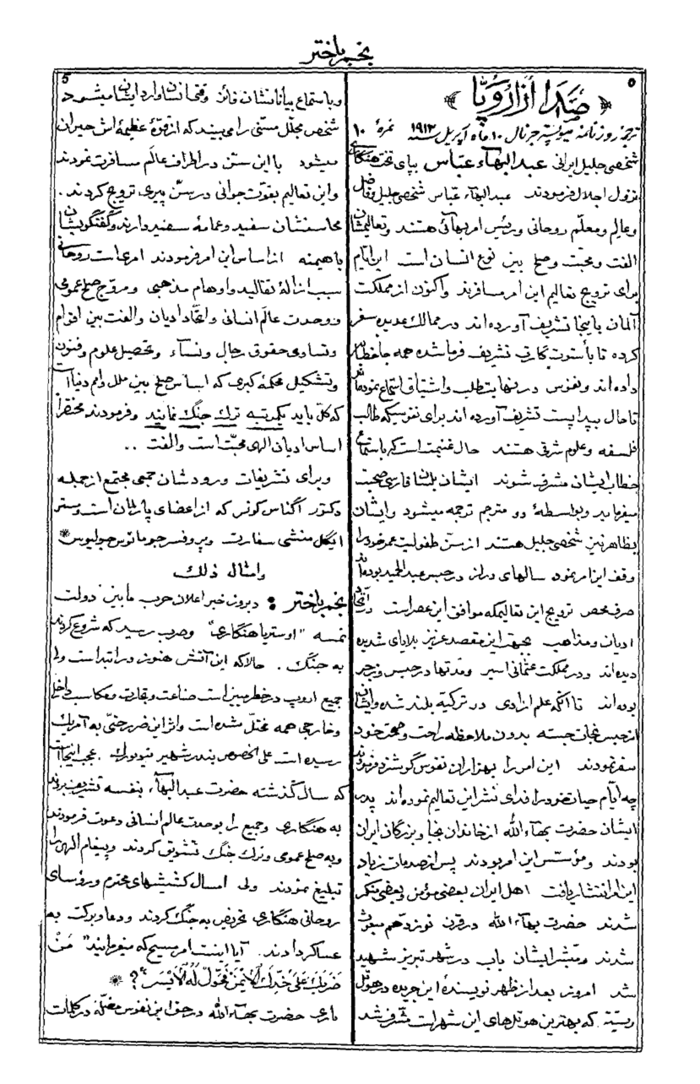 نجم باختر
۵
﴿ صدا از اروپا ﴾
ترجمهٔ روزنامه جرنال ۱۰ ماه آپریل سنه ۱۹۱۳ نمرهٔ ۱۰
شخصی جلیل ایرانی عبدالبهاء عباس بپای تخت هنگاری
نزول اجلال فرمودند عبدالبهآء عباس شخصی جلیل و فاضل
و عالم و معلّم روحانی و رئیس امر بهائی هستند و تعالیمشان
الفت و محبّت و صلح بین نوع انسان است این ایّام
برای ترویج تعالیم این امر مسافرند و اکنون از مملکت
آلمان باینجا تشریف آورده‌اند در ممالک عدیده سفر
کرده تا باستوتگارت تشریف فرما شده همه جا خطابه
داده‌اند و نفوس در نهایت طلب و اشتیاق استماع نموده‌اند
تا حال ببداپست تشریف آورده‌اند برای نفوسیکه طالب
فلسفه و علوم شرقی هستند حال غنیمت است که باستماع
خطاب ایشان مشرف شوند ایشان بلسان فارسی صحبت
میفرمایند و بواسطهٔ دو مترجم ترجمه میشود و ایشان
بظاهر نیز شخصی جلیل هستند از سنّ طفولیت عمر خود را
وقف این امر نمود سالهای دراز در حبس عبدالحمید بوده‌اند
صرف محض ترویج این تعالیمکه موافق این عصر است در اتّحاد
ادیان و مذاهب بجهت این مقصد عزیز بلایای شدیده
دیده‌اند و در مملکت عثمانی اسیر و مدتها در حبس و زجر
بوده‌اند تا آنکه علم آزادی در ترکیّه بلند شد و ایشان
از حبس نجات جسته بدون ملاحظه راحت و صحّت خود
سفر نمودند این امر را بهزاران نفوس گوشزد فرمودند
چه ایّام حیات خود را فدای نشر این تعالیم نموده‌اند پدر
ایشان حضرت بهآءالله از خاندان نجبا و بزرگان ایران
بودند و مؤسّس این امر بودند پس از صدمات زیاد
این امر انتشار یافت اهل ایران بعضی مؤمن و بعضی منکر
شدند حضرت بهآءالله در قرن نوزدهم مبعوث
شدند و مبشّر ایشان باب در شهر تبریز شهید
شد امروز بعد از ظهر نویسندهٔ این جریده در هوتل
ریتس که بهترین هوتلهای این شهر است مشرف شد
5
و باستماع بیاناتشان فائز وقتی انسان وارد ایشان میشود
شخص مجلّل مسنّی را میبیند که از قوّهٔ عظیمه‌اش حیران
میشود با این سنّ در اطراف عالم مسافرت نمودند
و این تعالیم بقوّت جوانی در سنّ پیری ترویج کردند.
محاسنشان سفید و عمامهٔ سفید دارند و گفتگویشان
با هیمنه از اساس این امر فرمودند امریست روحانی
سبب ازالهٔ تقالید و اوهام مذهبی و مروّج صلح عمومی
و وحدت عالم انسانی و اتّحاد ادیان و الفت بین اقوام
و تساوی حقوق رجال و نسآء و تحصیل علوم و فنون
و تشکیل محکمهٔ کبری که اساس صلح بین ملل و امم دنیاست
که کلّ باید بکمرتبه ترک جنگ نمایند و فرمودند مختصراً
اساس ادیان الهی محبّت است و الفت ..
و برای تشریفات ورودشان جمعی مجتمع از جمله
دکتر آگناس کونر که از اعضای پارلمان است و مستر
انگل منشی سفارت و پروفسر جرمانوس جولیوس *
و امثال ذلک
نجم باختر : دیروز خبر اعلان حرب مابین دولت
نمسه "اوستریا هنگاری" و صرب رسید که شروع کردند
به جنگ . حالا که این آتش هنوز در ابتدا است ولی
جمیع اروپ در خطر میزاست صناعت و تجارت و مکاسب داخلی
و خارجی همه مختلّ شده است و اثر این ضرر حتّی به آمریک
رسیده است علی الخصوص بندر شهیر نیویورک . عجب اینجاست
که سال گذشته حضرت عبدالبهآء بنفسه تشریف بردند
به هنگاری و جمیع را بوحدت عالم انسانی دعوت فرمودند
و به صلح عمومی و ترک جنگ تشویق کردند و پیغام الهی را
تبلیغ نمودند ولی امسال کشیشهای محترم و رؤسای
روحانی هنگاری تحریض به جنگ کردند و دعا و برکت به
عساکر دادند . آیا اینست امر مسیح که میفرمایند "مَنْ
ضَرَبَکَ عَلی خَدِّکَ الْاَیمَنِ فَحَوِّلْ لَهُ الْاَیسَرَ" ؟ *
باری حضرت بهآءالله در حقّ این نفوس مضلّه در کلمات